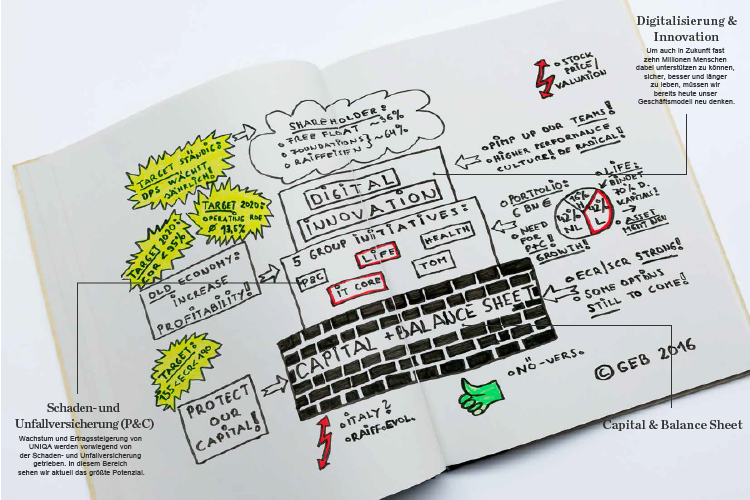 Digitalisierung &
Innovation
Um auch in Zukunft fast
zehn Millionen Menschen
dabei unterstützen zu können,
sicher, besser und länger
zu leben, müssen wir
bereits heute unser
Geschäftsmodell neu denken.
STOCK
PRICE/
VALUATION
SHAREHOLDER:
FREE FLOAT ~36%
FOUNDATIONS
RAIFFEISEN } ~64%
TARGET STÄNDIG:
DPS WÄCHST
JÄHRLICH!
TARGET 2020:
OPERATING ROE
Ø 13,5%
TARGET 2020:
COR < 95%
OLD ECONOMY:
INCREASE
PROFITABILITY!
DIGITAL
INNOVATION
5 GROUP INITIATIVES:
P&C
LIFE
HEALTH
IT CORE
TOM
PIMP UP OUR TEAMS!
HIGHER PERFORMANCE
CULTURE! BE RADICAL!
PORTFOLIO:
6 BN €
NEED
FOR
P&C!
GROWTH!
16%
H
42%
NL
42%
L
LIFE:
BINDET
70% D.
KAPITALS!
ASSET
MENT NEU
ECR/SCR STRONG!
SOME OPTIONS
STILL TO COME!
CAPITAL + BALANCE SHEET
TARGET:
155 < ECR < 190
PROTECT
OUR
CAPITAL!
ITALY?
RAIFF.EVOL.
NÖ-VERS.
© GEB 2016
Schaden- und
Unfallversicherung (P&C)
Wachstum und Ertragssteigerung von
UNIQA werden vorwiegend von
der Schaden- und Unfallversicherung
getrieben. In diesem Bereich
sehen wir aktuell das größte Potenzial.
Capital & Balance Sheet